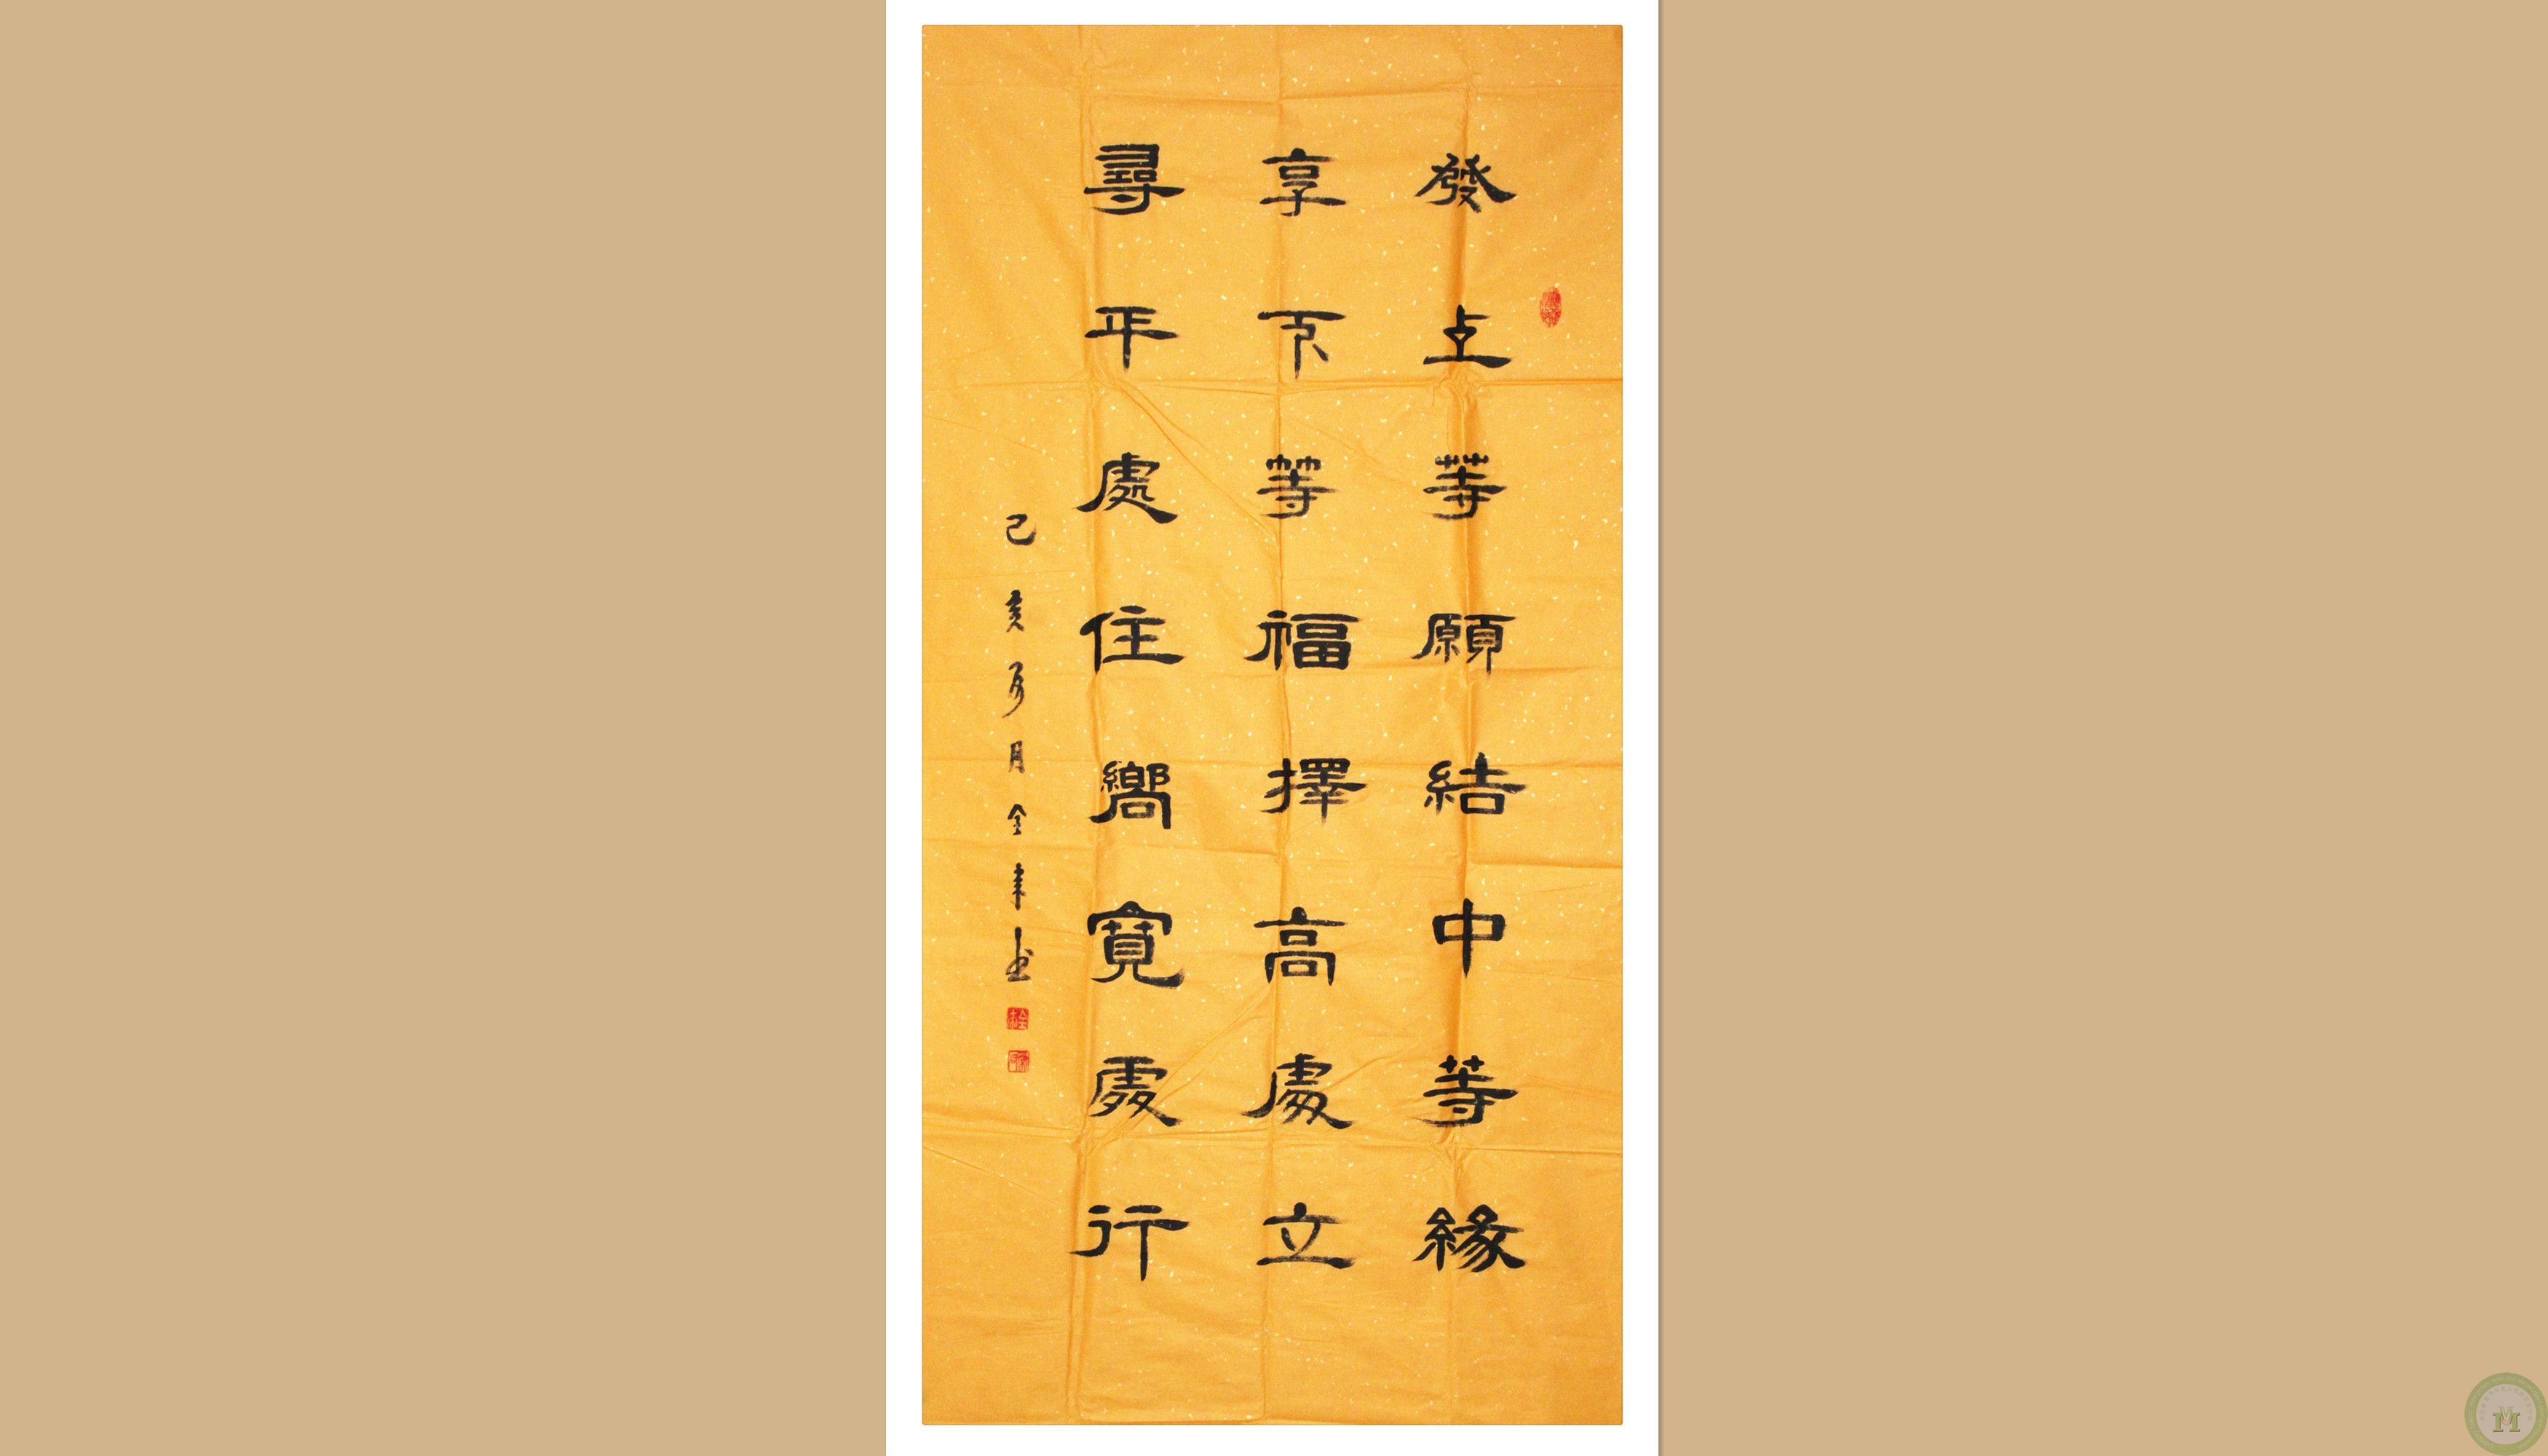 發上等願結中等緣
享下等福擇高處立
尋平處住嚮寬處行
己亥夏月